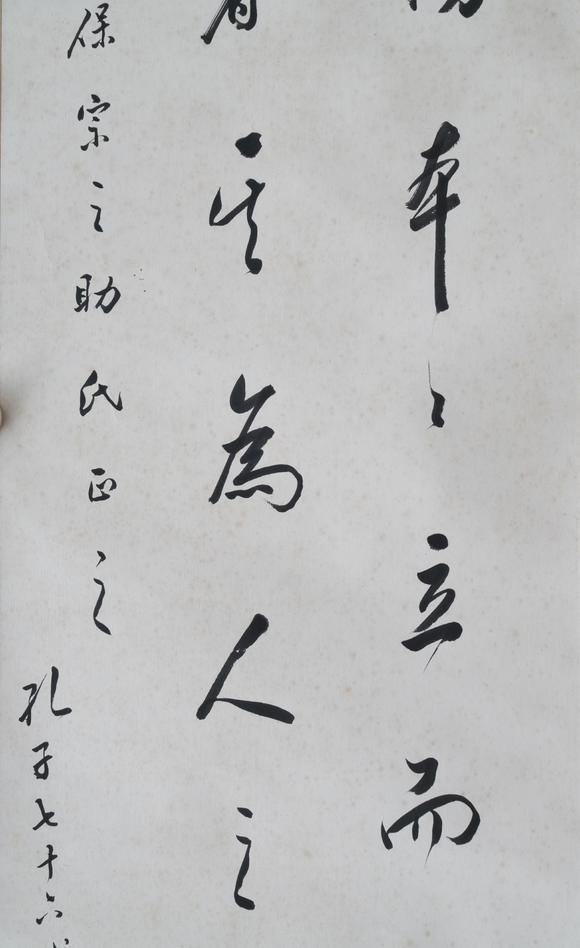 本々立而
其為人之
保宗之助氏正之
孔子七十六